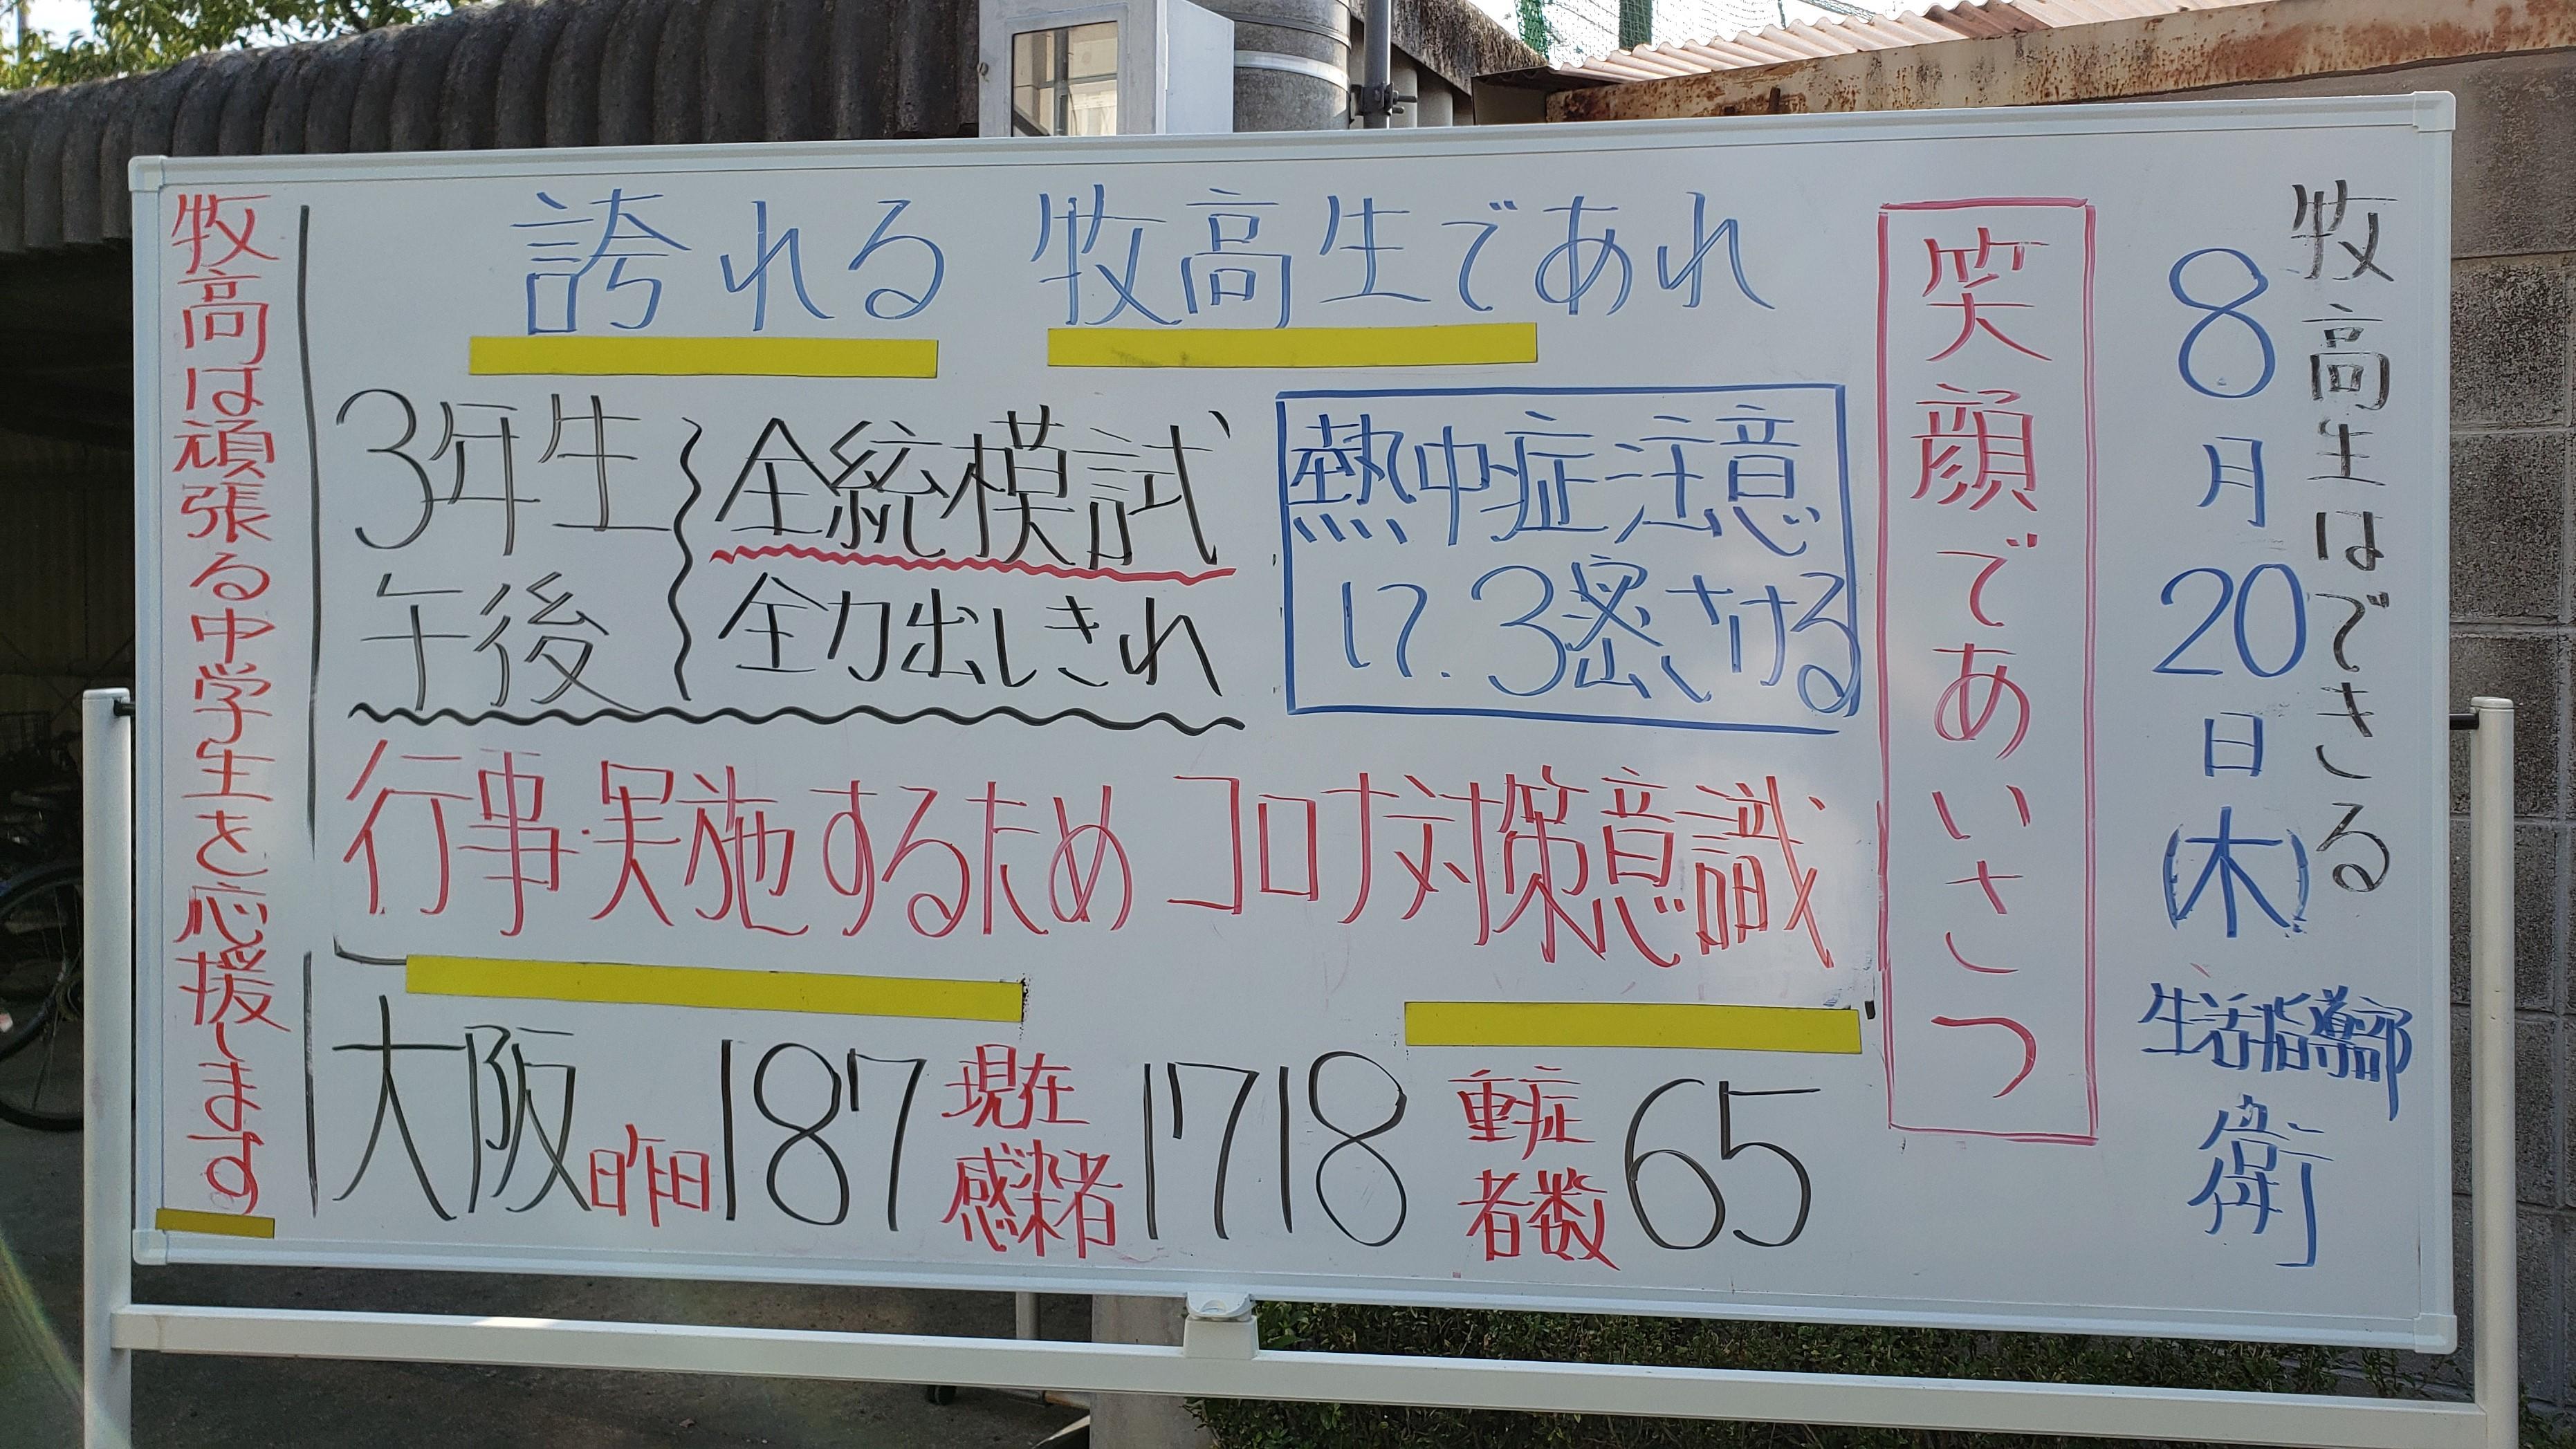 牧高生はできる
8月20日(木)生活指導部 衛
笑顔であいさつ
誇れる 牧高生であれ
3年生 全統模試
午後 全力出しきれ
熱中症注意
17.3密さける
行事・実施するため コロナ対策意識
大阪昨日187 現在感染者1718 重症者数65
牧高は頑張る中学生を応援します